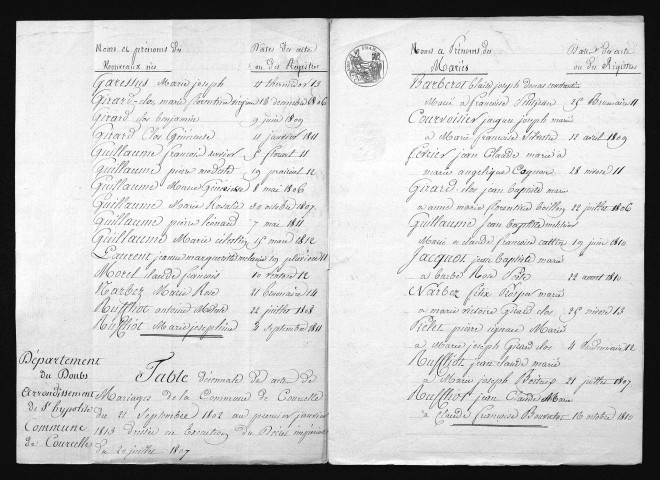 Noms et prénoms du Dates des acte
nouveaux nés ou des Registres
Garessus Marie joseph 11 thermidor 13
Girard clos marie florentine 16 decembre 1806
Girard clos benjamin 9 juin 1809
Girard Clos Généreuse 11 janvier 1811
Guillaume francois xavier floreal 11
Guillaume pierre modeste 19 prairial 12
Guillaume Marie Généreuse 8 mai 1806
Guillaume Marie Rosalie 20 octobre 1807
Guillaume pierre léonard 7 mai 1811
Guillaume Marie célestine 15 mars 1812
Laurent jeanne marguerite melanie 19 pluviose 11
Morel claude francois 10 ventose 12
Narbez Marie Rose 21 brumaire 14
Ruffliot antoine 22 juillet 1808
Ruffliot Marie josephine 3 septembre 1811
Département
du Doubs
arrondissement
de St hypolite
Commune
de Courcelle
Table décennale des actes de
Mariages de la Commune de Courcelle
du 21 Septembre 1802 au premier janvier
1813 dressée en Execution du Décret impérial
du 20 juillet 1807
Noms et Prénoms des Dates des acte
Mariés ou des Registres
Barberot claude joseph donat
Marié a francoise 25 Brumaire 11
Courvoisier jacques joseph marié
a Marie francoise 12 avril 1809
ferrier jean Claude marié a
marie angelique Cagnon 28 nivose 11
Girard clos jean baptiste marié
a anne marie florentine 22 juillet 1806
Guillaume jean baptiste
Marié a claude françoise cattin 19 juin 1810
Jacquot jean baptiste marié
a Rose 22 avril 1810
Narbez félix Prosper marié
a marie victoire Girard clos 25 nivose 13
Pielet pierre ignace Marié
a Marie joseph Girard clos 4 12
Ruffliot jean claude marié
a Marie joseph 21 juillet 1807
Ruffliot jean Claude Marié
a Claude françoise 16 octobre 1810